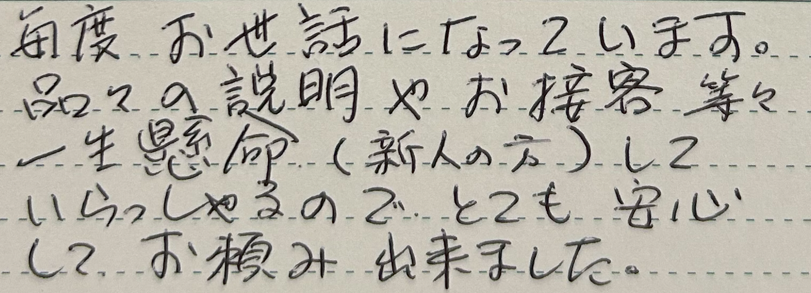 毎度 お世話になっています。
品々の説明やお接客 等々
一生懸命(新人の方)して
いらっしゃるので、とても 安心
して、お頼み出来ました。